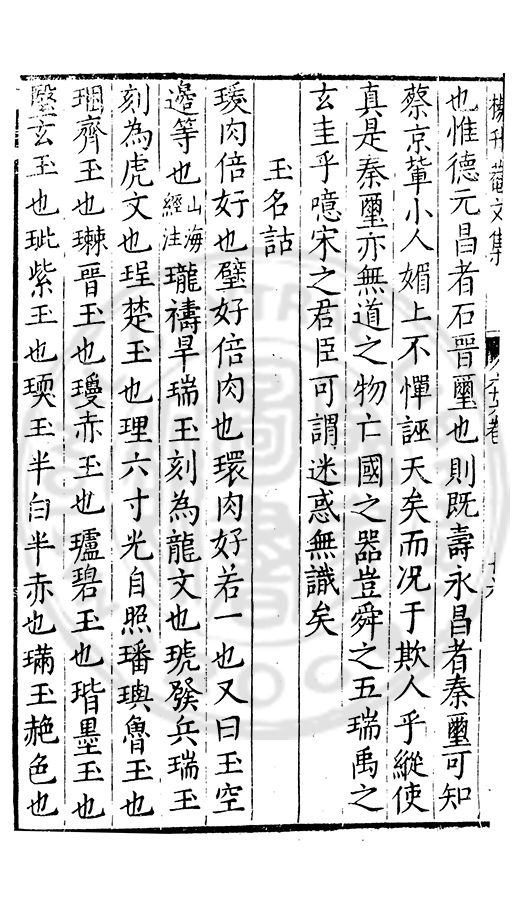 楊升菴文集
六十六卷
十六
也惟德元昌者石晉璽也則既壽永昌者秦璽可知
蔡京輩小人媚上不憚誣天矣而况于欺人乎縱使
真是秦璽亦無道之物亡國之器豈舜之五瑞禹之
玄圭乎噫宋之君臣可謂迷惑無識矣
玉名詁
瑗肉倍好也璧好倍肉也環肉好若一也又曰玉空
邉等也山海經注瓏禱旱瑞玉刻為龍文也琥發兵瑞玉
刻為虎文也珵楚玉也理六寸光自照璠璵魯玉也
齊玉也璛晉玉也瓊赤玉也瓐碧玉也瑎墨玉也
玄玉也玼紫玉也瑌玉半白半赤也璊玉赩色也